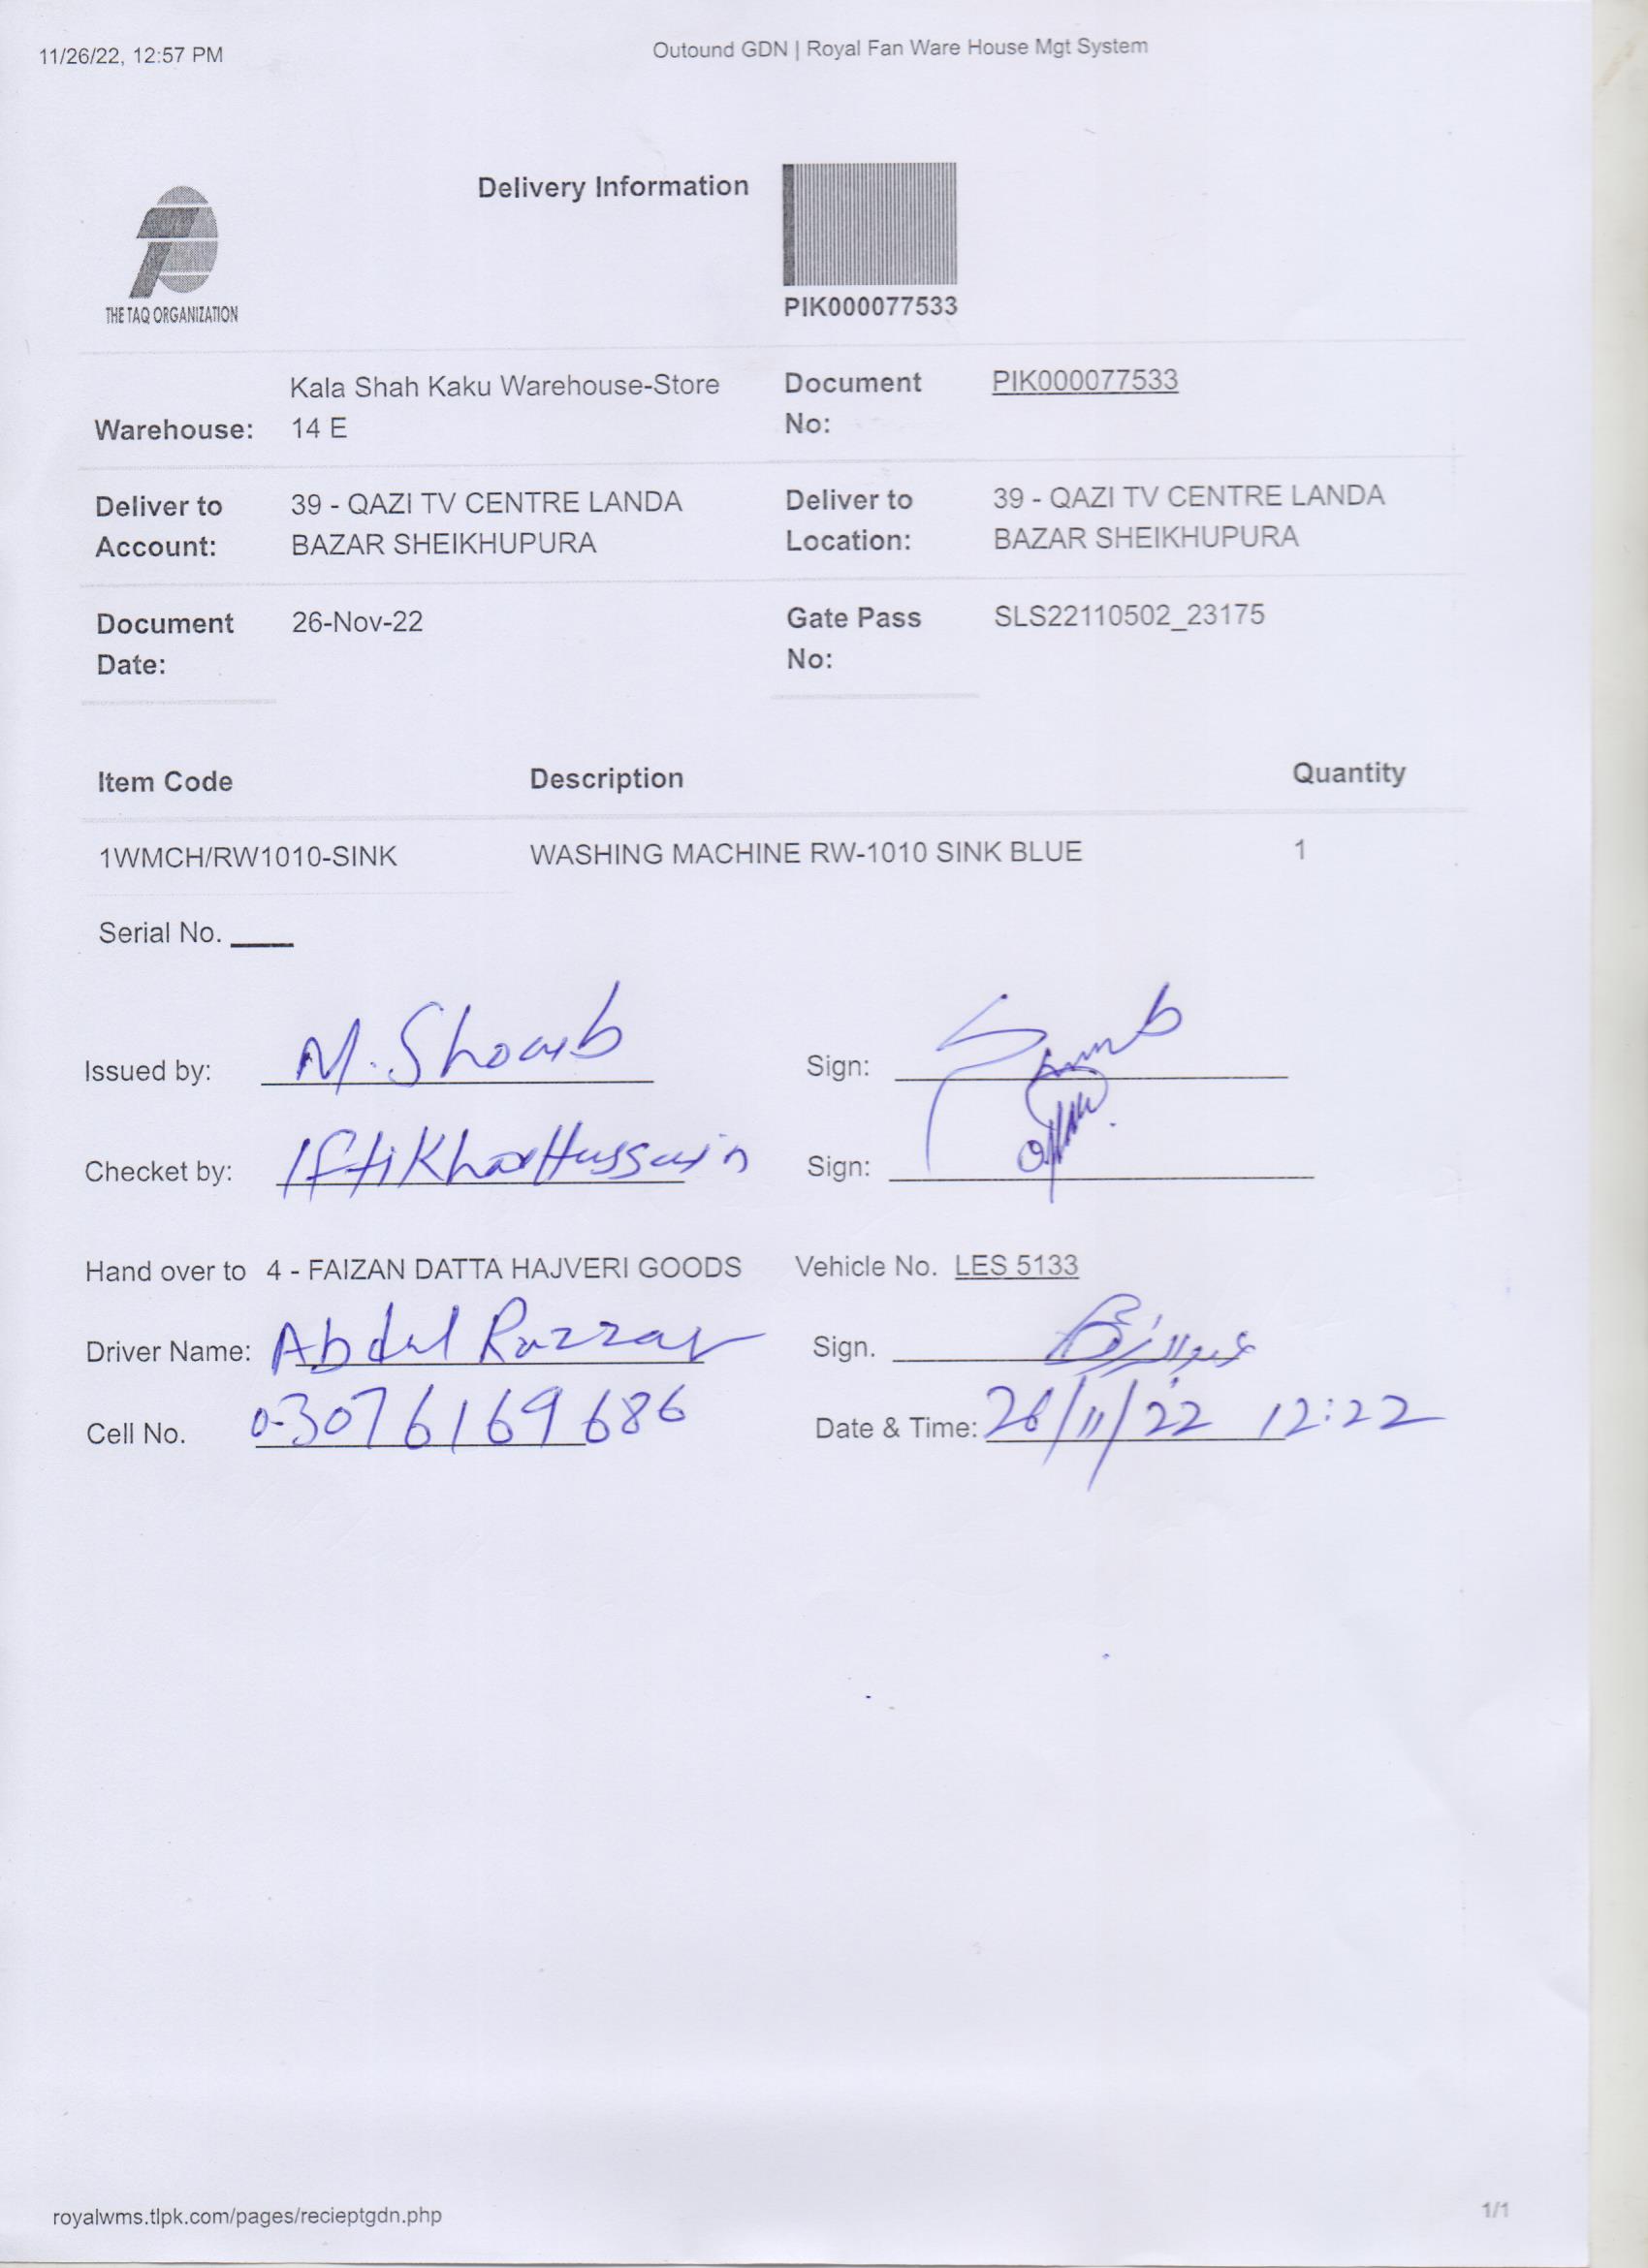 11/26/22, 12:57 PM
Outound GDN | Royal Fan Ware House Mgt System
Delivery Information
THE TAQ ORGANIZATION
PIK000077533
Warehouse: Kala Shah Kaku Warehouse-Store 14 E
Document No: PIK000077533
Deliver to Account: 39 - QAZI TV CENTRE LANDA BAZAR SHEIKHUPURA
Deliver to Location: 39 - QAZI TV CENTRE LANDA BAZAR SHEIKHUPURA
Document Date: 26-Nov-22
Gate Pass No: SLS22110502_23175
Item Code Description Quantity
1WMCH/RW1010-SINK WASHING MACHINE RW-1010 SINK BLUE 1
Serial No.
Issued by: M. Shoaib Sign:
Checket by: Iftikhar Hussain Sign:
Hand over to 4 - FAIZAN DATTA HAJVERI GOODS Vehicle No. LES 5133
Driver Name: Abdul Razzaq Sign. عبدالرزاق
Cell No. 0-3076169686 Date & Time: 26/11/22 12:22
royalwms.tlpk.com/pages/recieptgdn.php
1/1